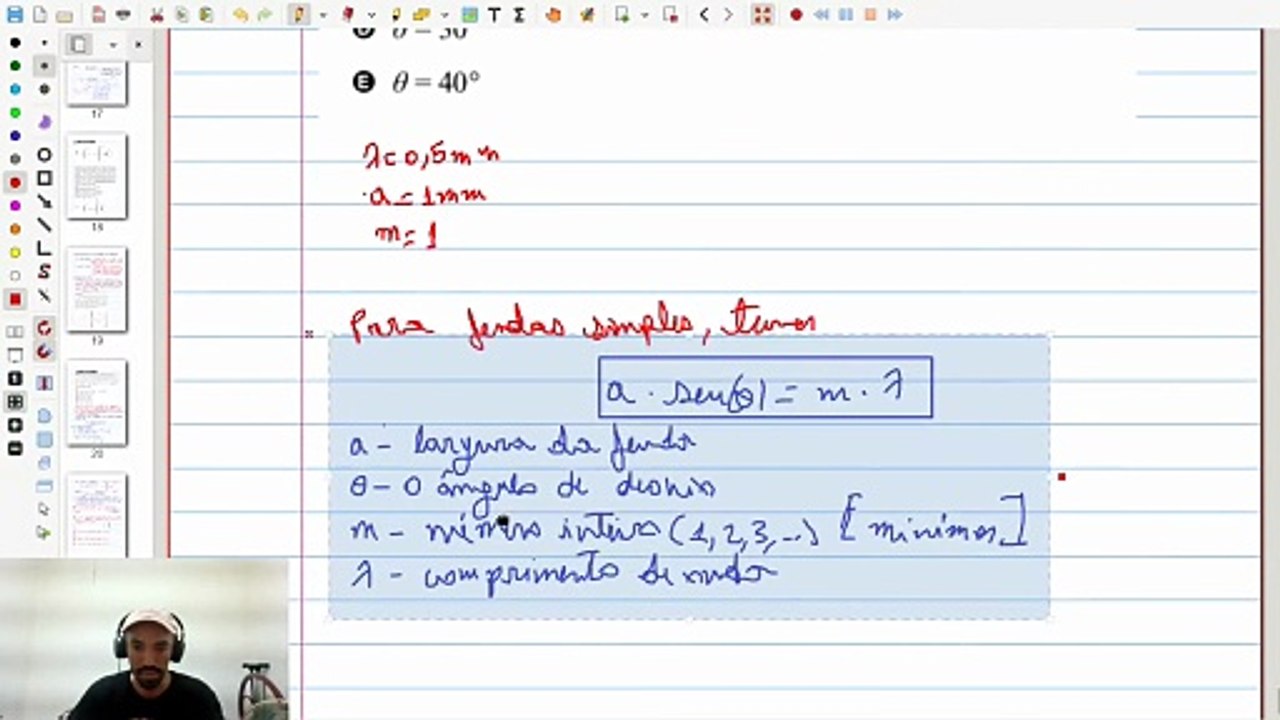 D θ = 30°
E θ = 40°
λ = 0,5mm
a = 1mm
m = 1
Para fendas simples, temos
a · sen(θ) = m · λ
a - largura da fenda
θ - O ângulo de desvio
m - número inteiro (1, 2, 3, ...) [minimos]
λ - comprimento de onda
17
18
19
20